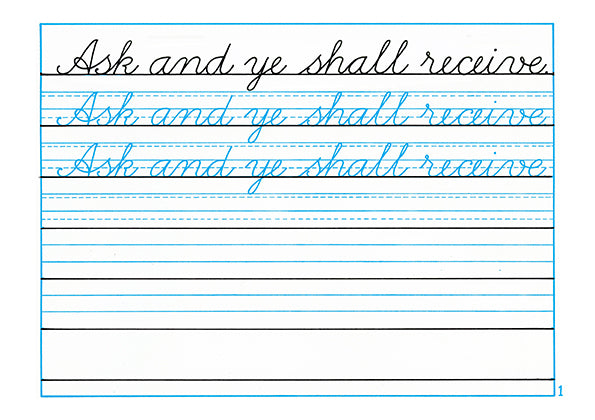 Ask and ye shall receive.
Ask and ye shall receive.
Ask and ye shall receive.
1